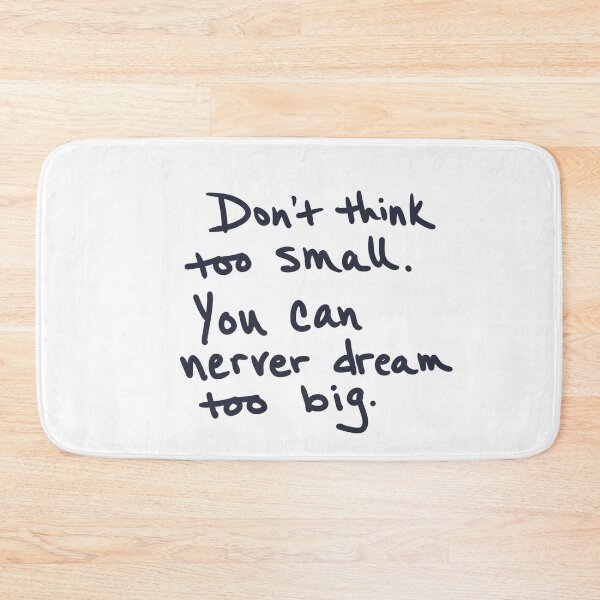 Don't think
too small.
You can
nerver dream
too big.